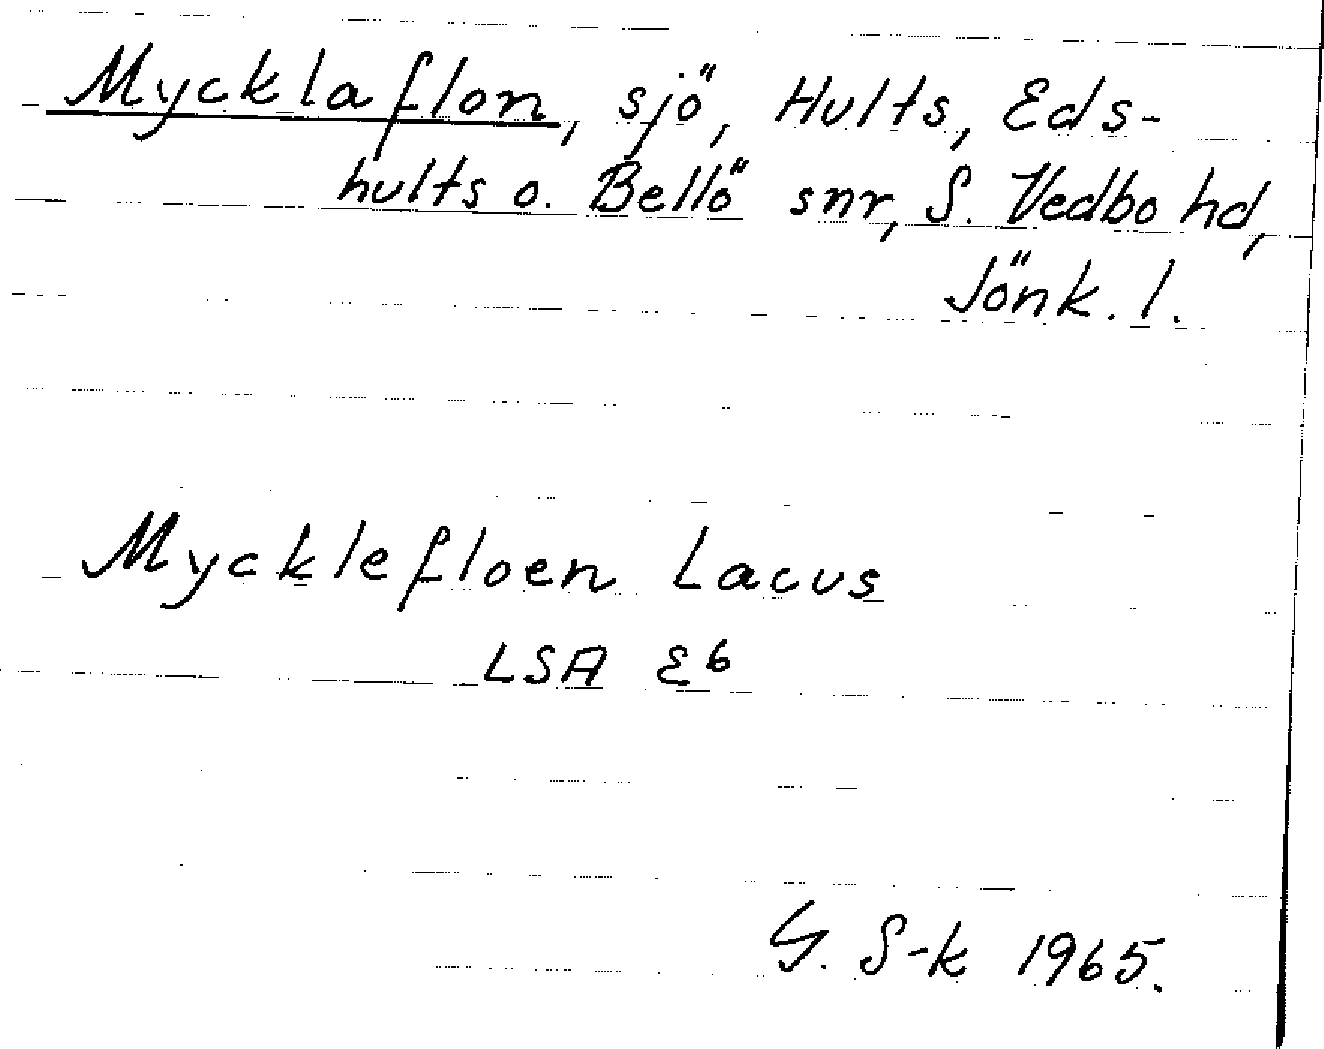 Mycklaflon, sjö, Hults, Eds-
hults o. Bellö snr, S. Vedbo hd,
Jönk. l.
Mycklefloen Lacus
LSA E6
G. S-k 1965.